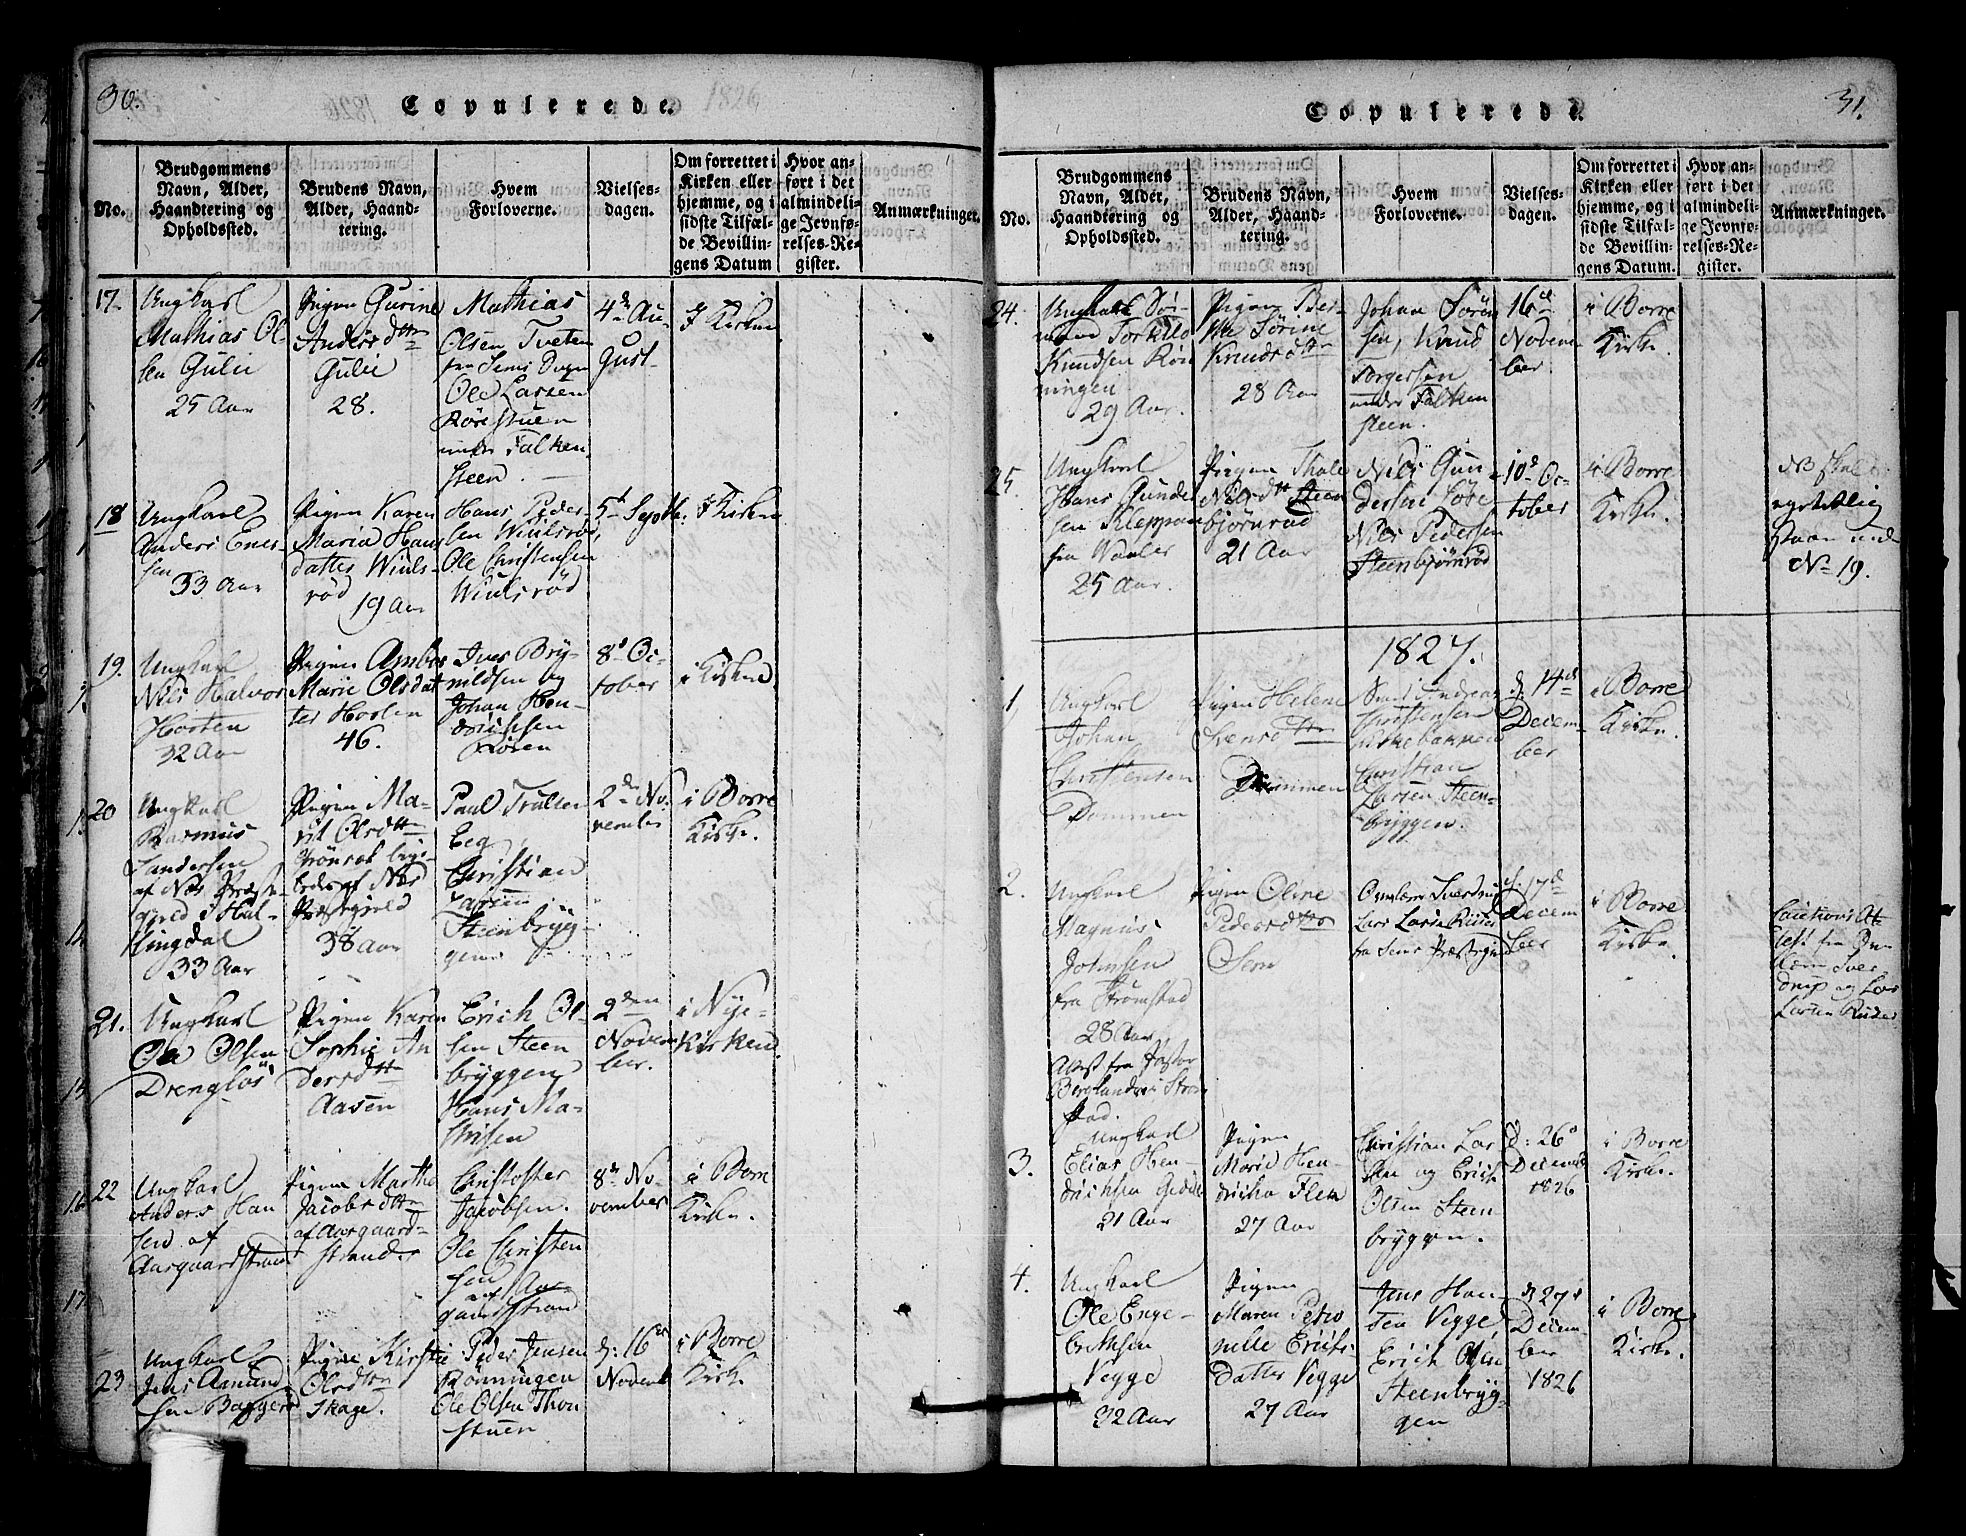 30.
Copulerede.
1826
No.
Brudgommens
Navn, Alder,
Haandtering og
Opholdssted.
Brudens Navn,
Alder, Haand-
tering.
Hvem
Forloverne.
Vielses-
dagen.
Om forrettet i
Kirken eller
hjemme, og i
sidste Tilfæl-
de Bevillin-
gens Datum
Hvor an-
ført i det
almindeli-
ge Jevnfø-
relses-Re-
gister.
Anmærkninger.
17.
Ungkarl
Mathias Ol-
sen Gulie
25 Aar
Pigen Gurine
Andersdttr
Gulie
28.
Mathias
Olsen Tveten
fra Sems
Ole Larsen
Rörestuen
under Falken-
steen.
4de Au-
gust
I Kirken
18
Ungkarl
Anders Ener-
sen
33 Aar
Pigen Karen
Maria Hans
datter Wiuls-
röd
19 Aar
Hans Peder-
sen Wiulsröd,
Ole Christensen
Wiulsröd
5t Septb:
I Kirken
19.
Ungkarl
Nils Halvor
Horten
32 Aar
Pigen Ambor
Marie Olsdat
ter Horten
46.
Iver Bry-
nildsen og
Johan Hen-
drichsen
8d Oc-
tober
i Kirken
20
Ungkarl
Rasmus
Sandersen
af Næs Præste-
gjeld i Hal-
lingdal
33 Aar
Pigen Ma-
rit Olsdttr
lige-
ledes af Næs
Præstegjeld
38 Aar
Paul Trulsen
Eeg
Christian
Larsen
Steenbryg-
gen
2den No-
vember
i Borre
Kirke.
21.
Ungkarl
Ole Olsen
Drenglös
Pigen Karen
Sophie An
dersdttr
Aasen
Erich Ol-
sen Steen
bryggen
Hans Ma-
thisen
2den
Novem
ber.
i Nye-
Kirken
22
Ungkarl
Anders Han
sen af
Aasgaardstrand
Pigen Marthe
Jacobsdttr
af Aasgaard-
strander
Christoffer
Jacobsen.
Ole Christen
sen
af Aas-
gaardstrand
8de No-
vember
i Borre
Kirke.
23
Ungkarl
Jens Amund
sen
Pigen Kirstie
Olsdttr
Skage.
Peder Jensen
Rönningen
Ole Olsen Thon
stuen
d: 16de
Novemb
i Borre
Kirke
31.
Copulerede.
No.
Brudgommens
Navn, Alder,
Haandtering og
Opholdssted.
Brudens Navn,
Alder, Haand-
tering.
Hvem
Forloverne.
Vielses-
dagen.
Om forrettet i
Kirken eller
hjemme, og i
sidste Tilfæl-
de Bevillin-
gens Datum.
Hvor an-
ført i det
almindeli-
ge Jevnfø-
relses-Re-
gister.
Anmærkninger.
24.
Ungkarl Sör-
mand Torkild
Knudsen Rön
ningen
29 Aar.
Pigen Ber-
the Sörine
Knudsdttr
28 Aar
Johan Sören
sen, Knud
Torgersen
under Falken
steen.
16de
Novem
ber.
i Borre
Kirke.
25.
Ungkarl
Hans Gunder
sen Kleppan
fra Waaler
25 Aar.
Pigen Thale
Nilsdttr Steen
bjørnröd
21 Aar
Nils Gun
dersen
Nils Pedersen
Steenbjørnröd
10de Oc-
tober
i Borre
Kirke.
NB skal
egentelig
staae und
No 19.
1827.
1
Ungkarl
Johan
Christensen
Dammen
Pigen Helene
Svensdttr
Dammen
Andreas
Christensen
Kirkebakken
Christian
Larsen Steen-
bryggen.
d. 14de
Decem-
ber
i Borre
Kirke.
2.
Ungkarl
Magnus
Johnsen
fra Strömstad
28 Aar
Attest fra Pastor
i Ström
stad.
Pigen Oline
Pedersdttr
Sem
Sverdrup
Lars Larsen Riiser
fra Sems Præstegjeld
d. 17de
Decem
ber
i Borre
Kirke
Cautions At-
test fra
Sver
drup og Lars
Larsen Riiser
3.
Ungkarl
Elias Hen-
drichsen
21 Aar
Pigen
Marie Hen-
dricha
27 Aar
Christian Lar
sen og Erich
Olsen Steen
bryggen.
d: 26de
Decemb
1826
i Borre
Kirke.
4.
Ungkarl
Ole Enge-
brethsen
Vegge
32 Aar
Pigen
Maren Petro
nelle Erichs
datter Vegge
27 Aar
Jens Han-
sen Vegge
Erich Olsen
Steenbryg-
gen
d. 27de
Decem
ber
1826
i Borre
Kirke.